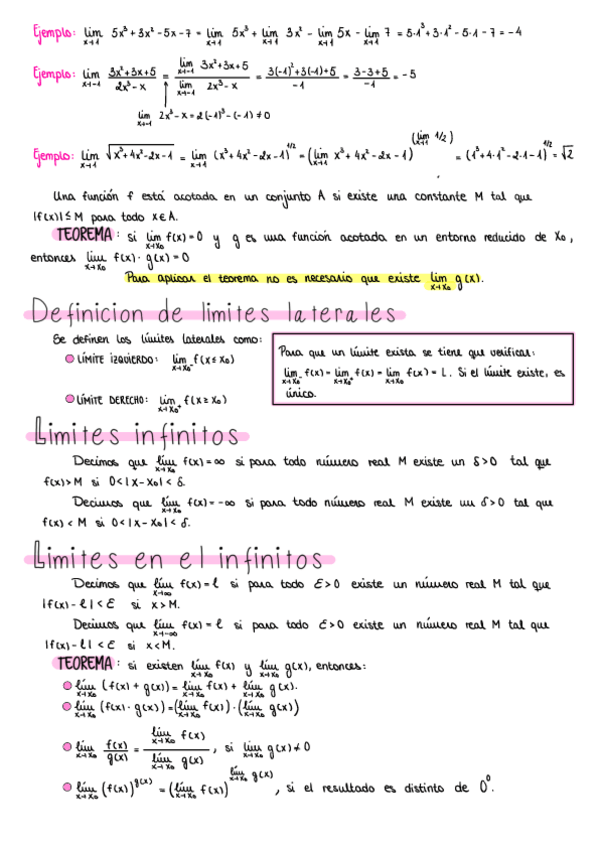 Ejemplo: lím x→1 5x³+3x²-5x-7 = lím x→1 5x³ + lím x→1 3x² - lím x→1 5x - lím x→1 7 = 5·1³+3·1²-5·1-7 = -4
Ejemplo: lím x→-1 (3x²+3x+5)/(2x³-x) = (lím x→-1 3x²+3x+5)/(lím x→-1 2x³-x) = (3(-1)²+3(-1)+5)/(-1) = (3-3+5)/(-1) = -5
lím x→-1 2x³-x = 2(-1)³-(-1) ≠ 0
Ejemplo: lím x→1 √(x³+4x²-2x-1) = lím x→1 (x³+4x²-2x-1)^(1/2) = (lím x→1 x³+4x²-2x-1)^(lím x→1 1/2) = (1³+4·1²-2·1-1)^(1/2) = √2
Una función f está acotada en un conjunto A si existe una constante M tal que
|f(x)| ≤ M para todo x∈A.
TEOREMA: si lím x→x₀ f(x)=0 y g es una función acotada en un entorno reducido de x₀,
entonces lím x→x₀ f(x)·g(x)=0
Para aplicar el teorema no es necesario que existe lím x→x₀ g(x).
Definicion de limites laterales
Se definen los límites laterales como:
LÍMITE IZQUIERDO: lím x→x₀⁻ f(x≤x₀)
LÍMITE DERECHO: lím x→x₀⁺ f(x≥x₀)
Para que un límite exista se tiene que verificar:
lím x→x₀⁻ f(x) = lím x→x₀⁺ f(x) = lím x→x₀ f(x) = L. Si el límite existe, es
único.
Limites infinitos
Decimos que lím x→x₀ f(x)=∞ si para todo número real M existe un δ>0 tal que
f(x)>M si 0<|x-x₀|<δ.
Decimos que lím x→x₀ f(x)=-∞ si para todo número real M existe un δ>0 tal que
f(x)<M si 0<|x-x₀|<δ.
Limites en el infinitos
Decimos que lím x→∞ f(x)=ℓ si para todo ε>0 existe un número real M tal que
|f(x)-ℓ|<ε si x>M.
Decimos que lím x→-∞ f(x)=ℓ si para todo ε>0 existe un número real M tal que
|f(x)-ℓ|<ε si x<M.
TEOREMA: si existen lím x→x₀ f(x) y lím x→x₀ g(x), entonces:
lím x→x₀ (f(x)+g(x)) = lím x→x₀ f(x) + lím x→x₀ g(x).
lím x→x₀ (f(x)·g(x)) = (lím x→x₀ f(x))·(lím x→x₀ g(x))
lím x→x₀ f(x)/g(x) = (lím x→x₀ f(x))/(lím x→x₀ g(x)), si lím x→x₀ g(x)≠0
lím x→x₀ (f(x))^g(x) = (lím x→x₀ f(x))^(lím x→x₀ g(x)), si el resultado es distinto de 0⁰.